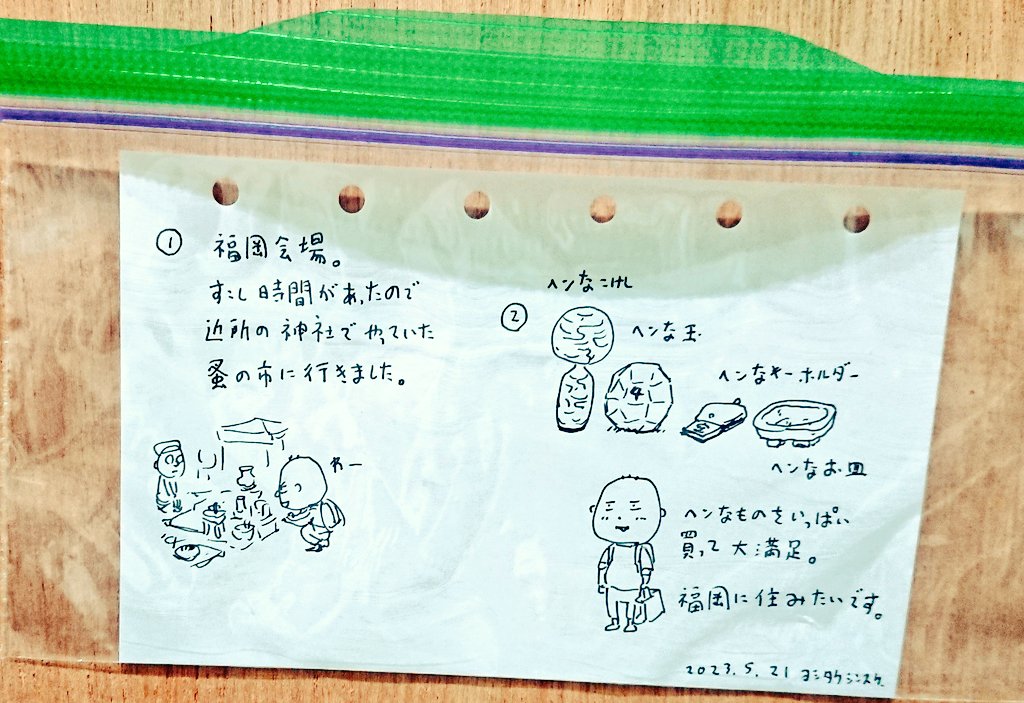 ① 福岡会場。
すこし時間があったので
近所の神社でやっていた
蚤の市に行きました。
わー
②
ヘンなこけし
ヘンな玉
4
ヘンなキーホルダー
ヘンなお皿
ヘンなものをいっぱい
買って大満足。
福岡に住みたいです。
2023.5.21 ヨシタケシンスケ